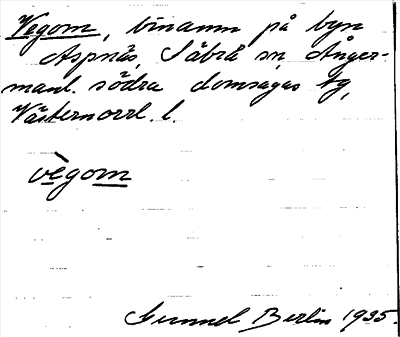 Vegom, binamn på byn
Aspnäs, Säbrå sn, Ånger-
manl. södra domsagas tg,
Västernorrl. l.
vègom
Gunnel Berlin 1935.